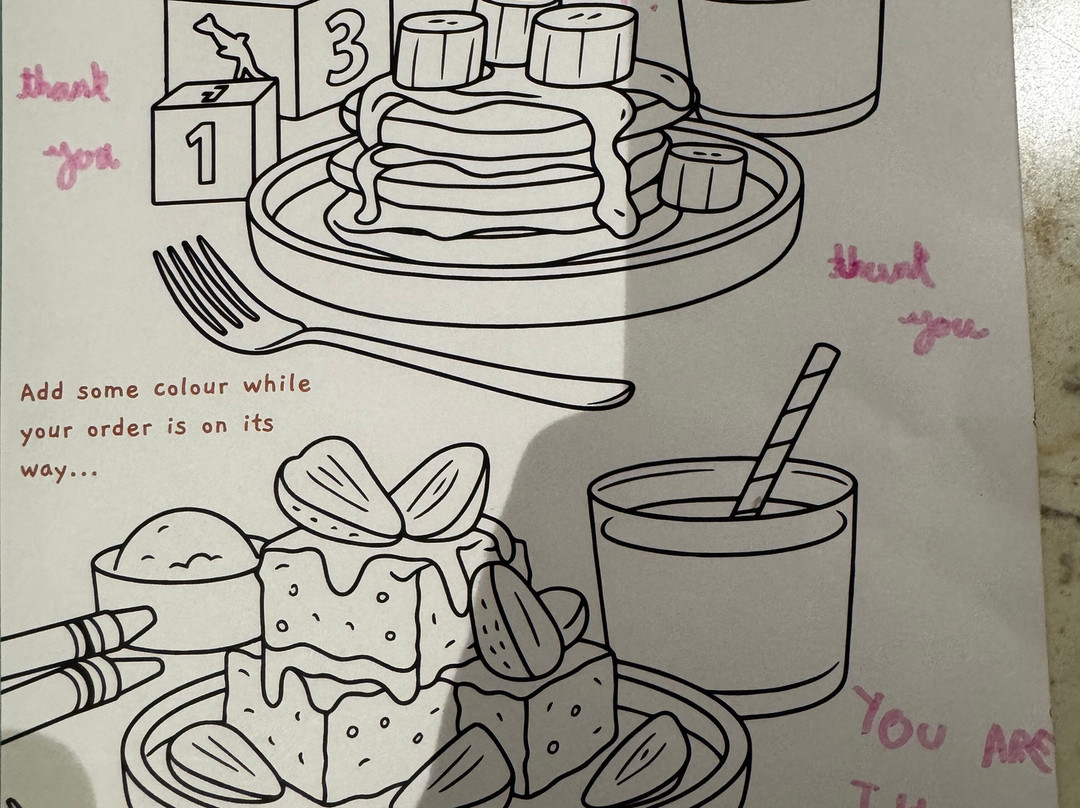 3
1
thank
you
thank
you
Add some colour while
your order is on its
way...
YOU ARE